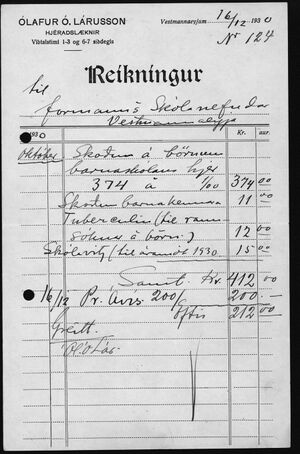 ÓLAFUR Ó. LÁRUSSON
HJERAÐSLÆKNIR
Viðtalstimi 1-3 og 6-7 síðdegis
Vestmannaeyjum 16/12 1930
No 124
Reikningur
til
formanns Skólanefndar
Vestmannaeyja
1930
október Skoðun á börnum
barnaskólans hjer
374 á 1/00 374 00
Skoðun barnakennara 11 00
Tuberculin (til rann
sóknar á börn.) 12 00
Skólavitj (til áramót 1930 15 00
Samt. Kr. 412 00
16/12 Pr. Ávís 200/ 200 -
Eftir 212 00
Greitt.
Ól. Ó. Lár.